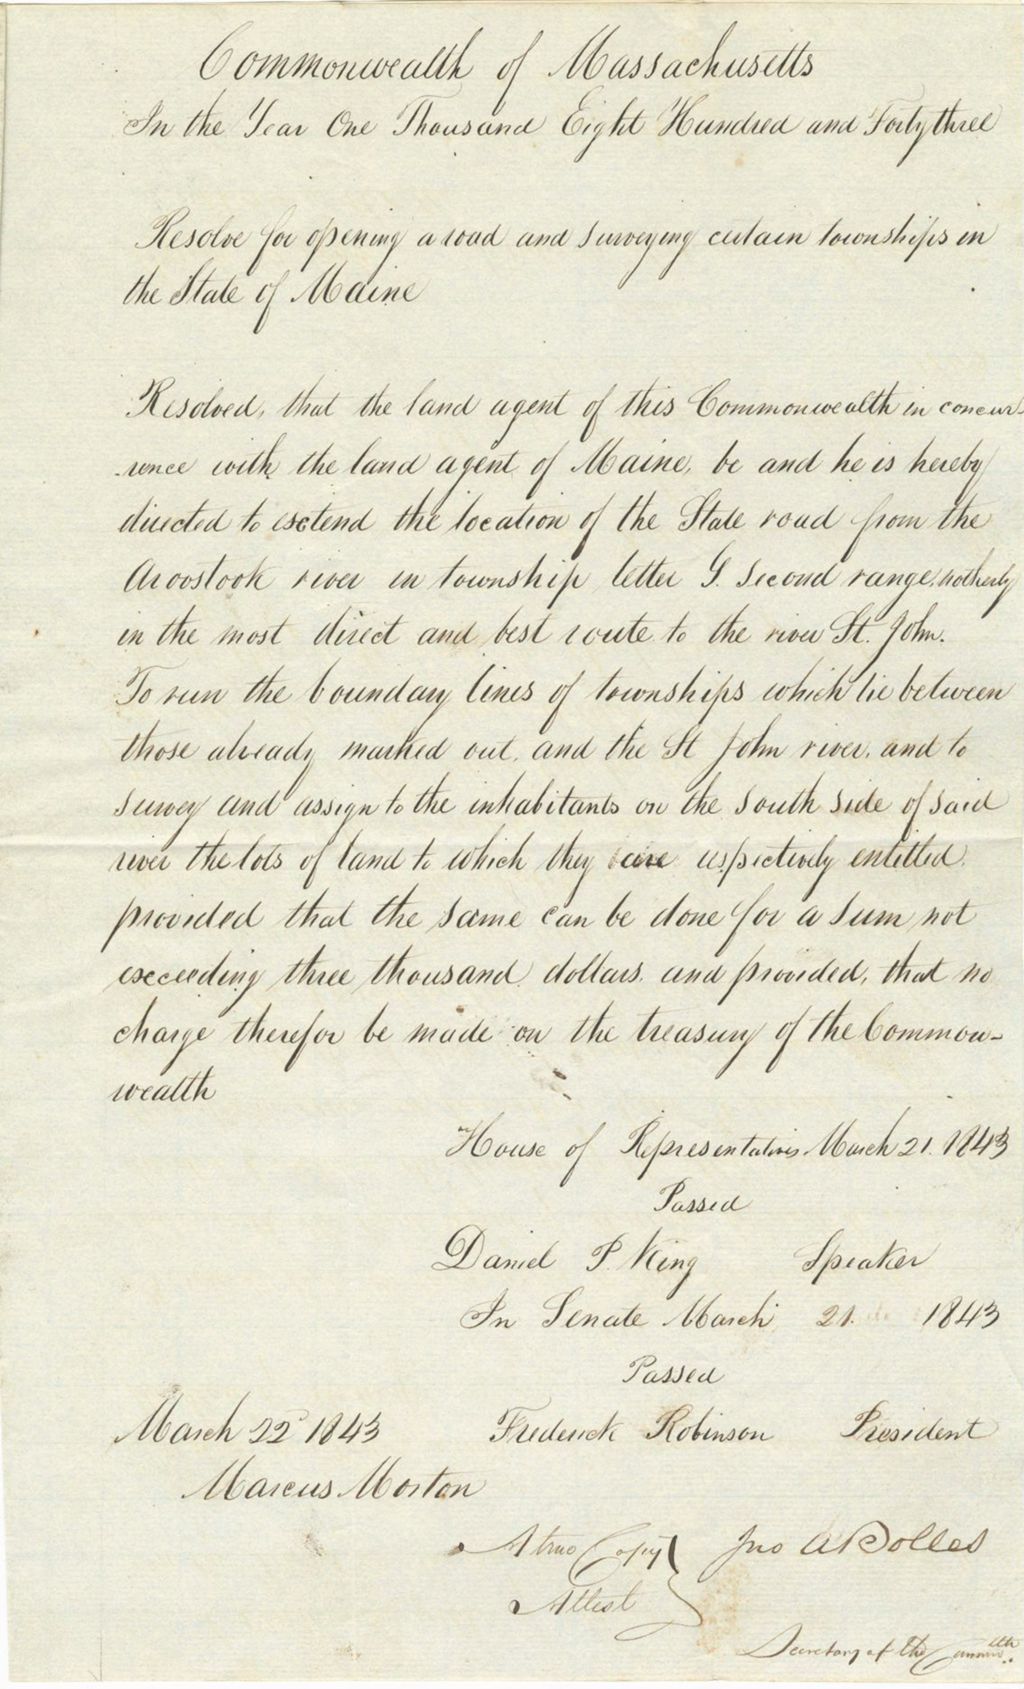 Commonwealth of Massachusetts
In the Year One Thousand Eight Hundred and Forty three
Resolve for opening a road and surveying certain townships in
the State of Maine
Resolved, that the land agent of this Commonwealth in concur-
-rence with the land agent of Maine, be and he is hereby
directed to extend the location of the State road from the
Aroostook river in township letter G. second range, notherly
in the most direct and best route to the river St. John.
To run the boundary lines of townships which lie between
those already marked out, and the St John river, and to
survey and assign to the inhabitants on the south side of said
river the lots of land to which they are respectively entitled,
provided that the same can be done for a sum not
exceeding three thousand dollars, and provided, that no
charge therefor be made on the treasury of the Common-
wealth
House of Representatives March 21. 1843
Passed
Daniel P. King Speaker
In Senate March 21. 1843
Passed
March 22d 1843 Frederick Robinson President
Marcus Morton
A true Copy Jno A Bolles
Attest
Secretary of the Commwth.